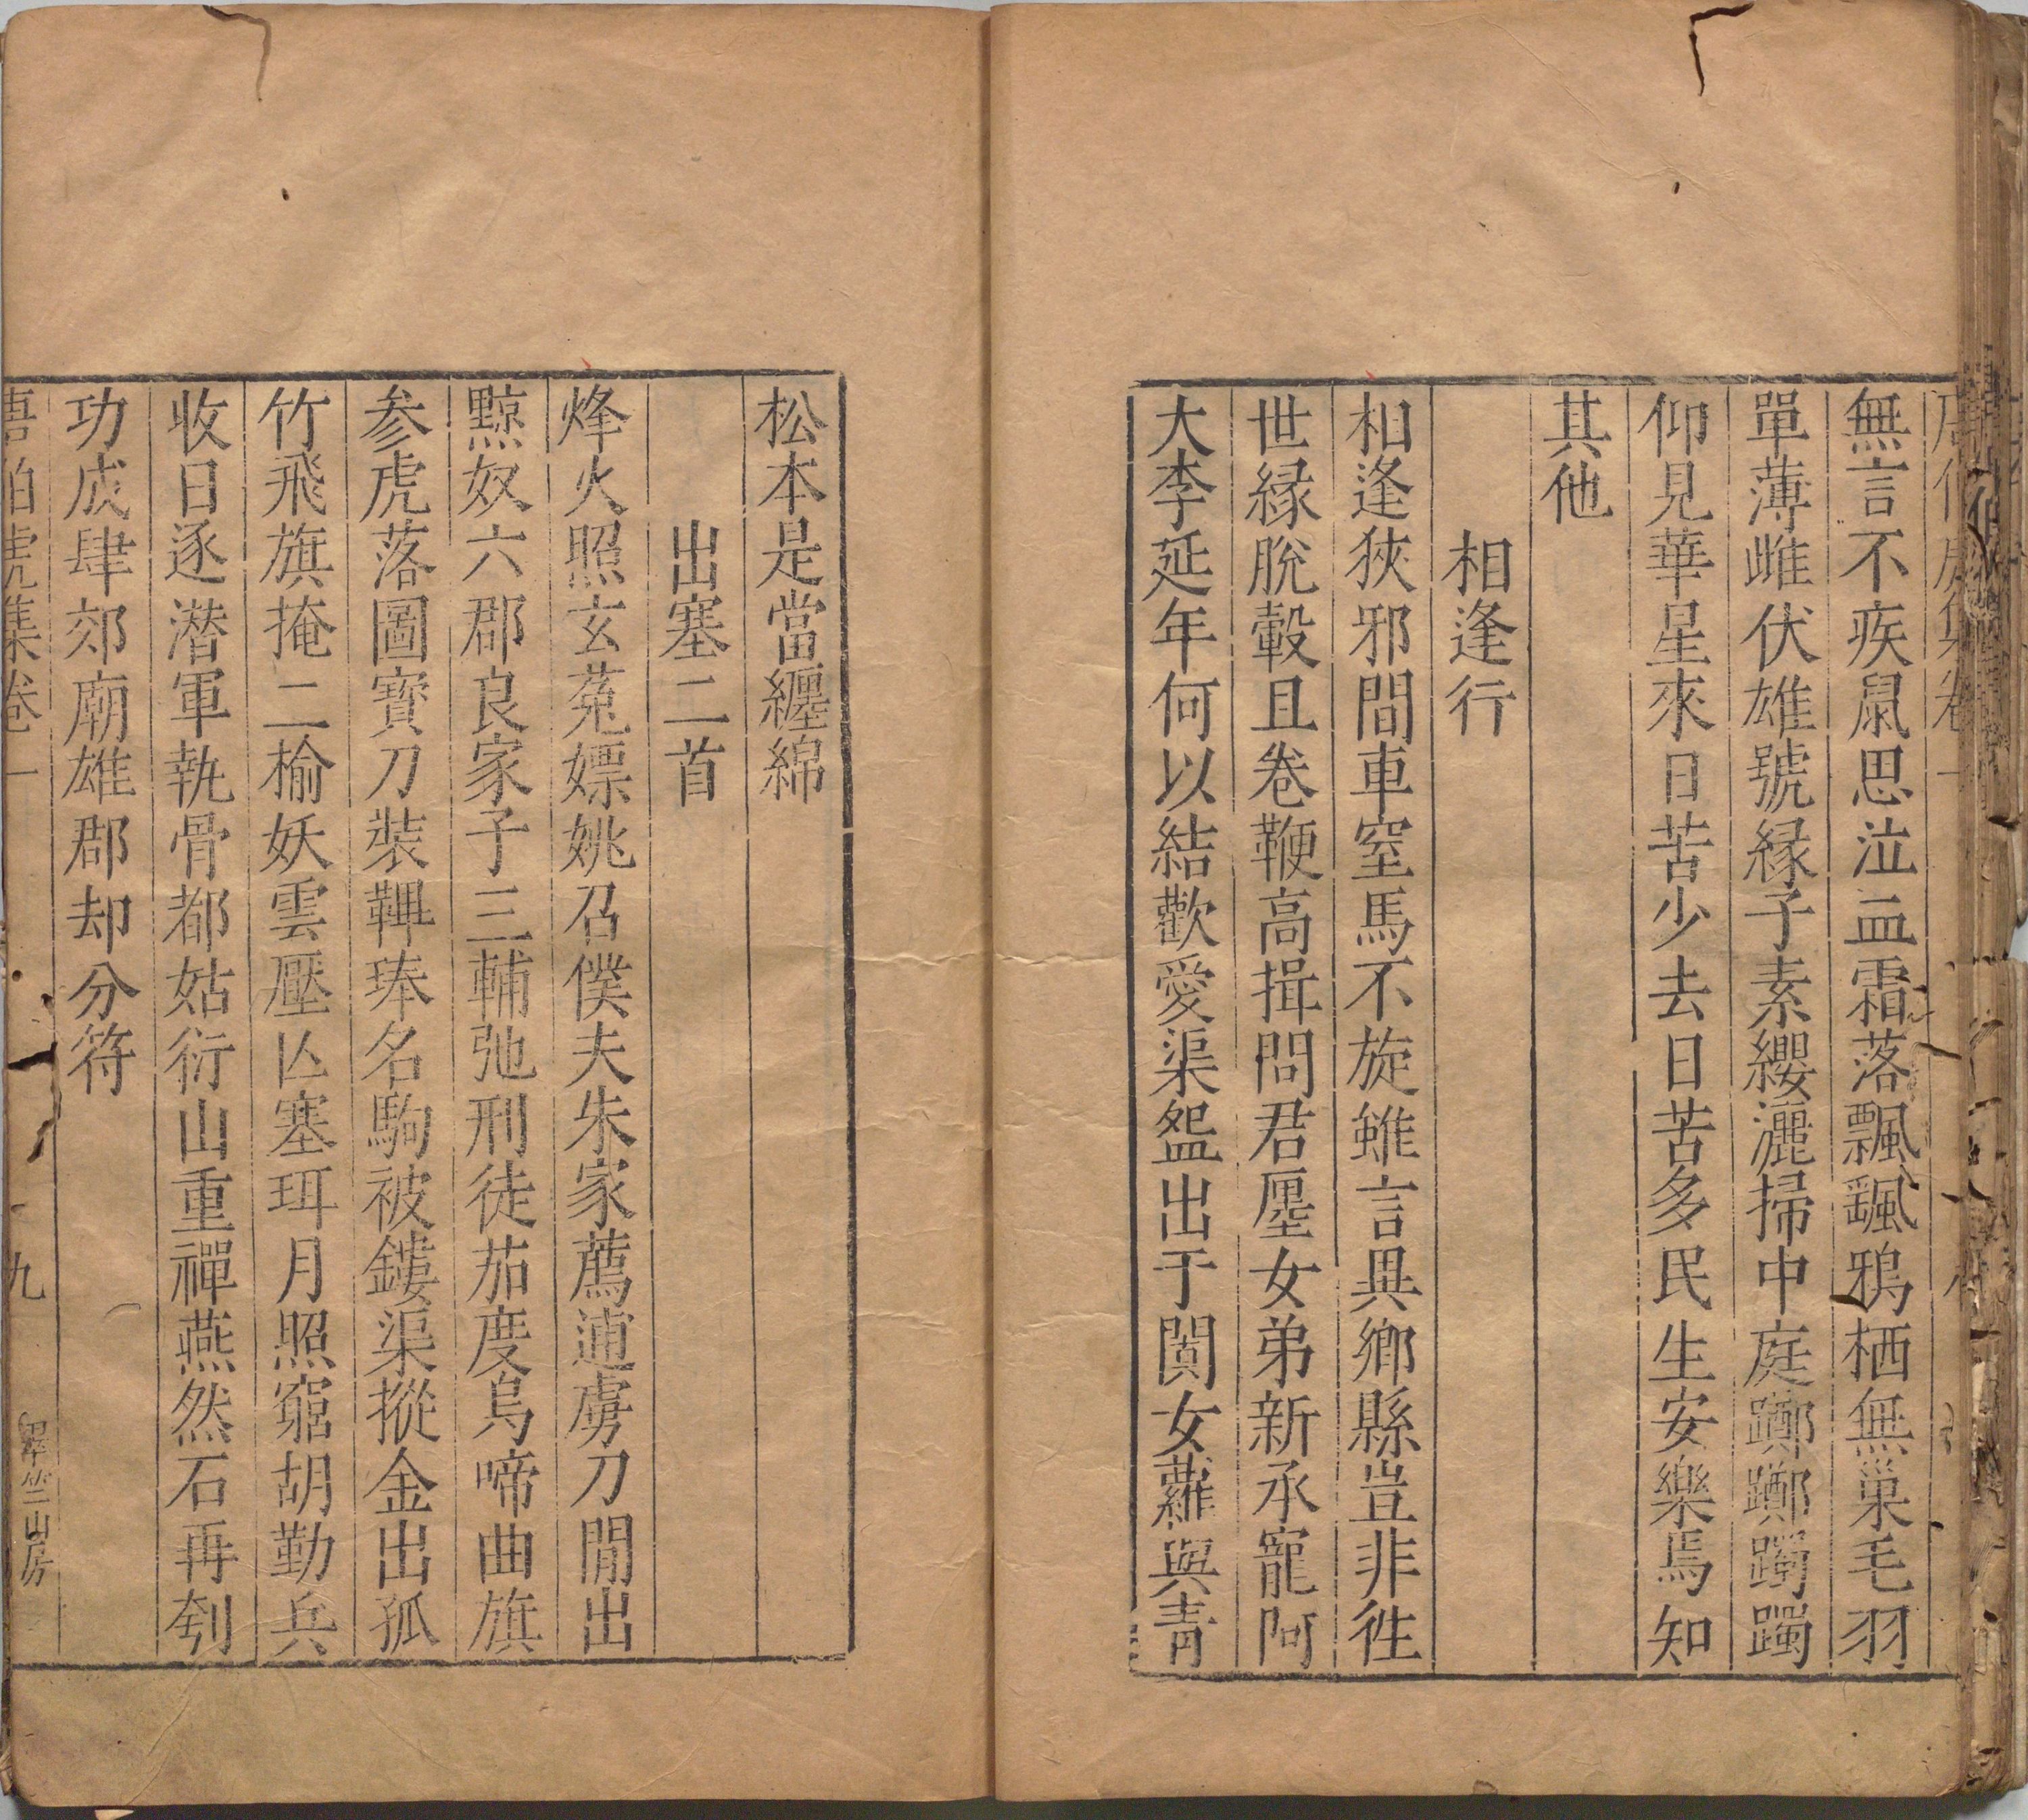 無言不疾鼠思泣血霜落飄颻鴉栖無巢毛羽
單薄雌伏雄號縁子素纓灑掃中庭躑躑躅躅
仰見華星來日苦少去日苦多民生安樂焉知
其他
相逢行
相逢狹邪間車窒馬不旋雖言異鄉縣豈非徃
世縁脫轂且卷鞭高揖問君廛女弟新承寵阿
大李延年何以結歡愛渠盌出于闐女蘿與青
松本是當纏綿
出塞二首
烽火照玄菟嫖姚召僕夫朱家薦逋虜刀閒出
黥奴六郡良家子三輔弛刑徒茄度烏啼曲旗
参虎落圖寳刀裝鞞琫名駒被鏤渠摐金出孤
竹飛旗掩二榆妖雲壓亾塞珥月照窮胡勒兵
收日逐潜軍執骨都姑衍山重禪燕然石再刳
功成肆郊廟雄郡却分符
唐伯虎集卷一
九
翠竺山房